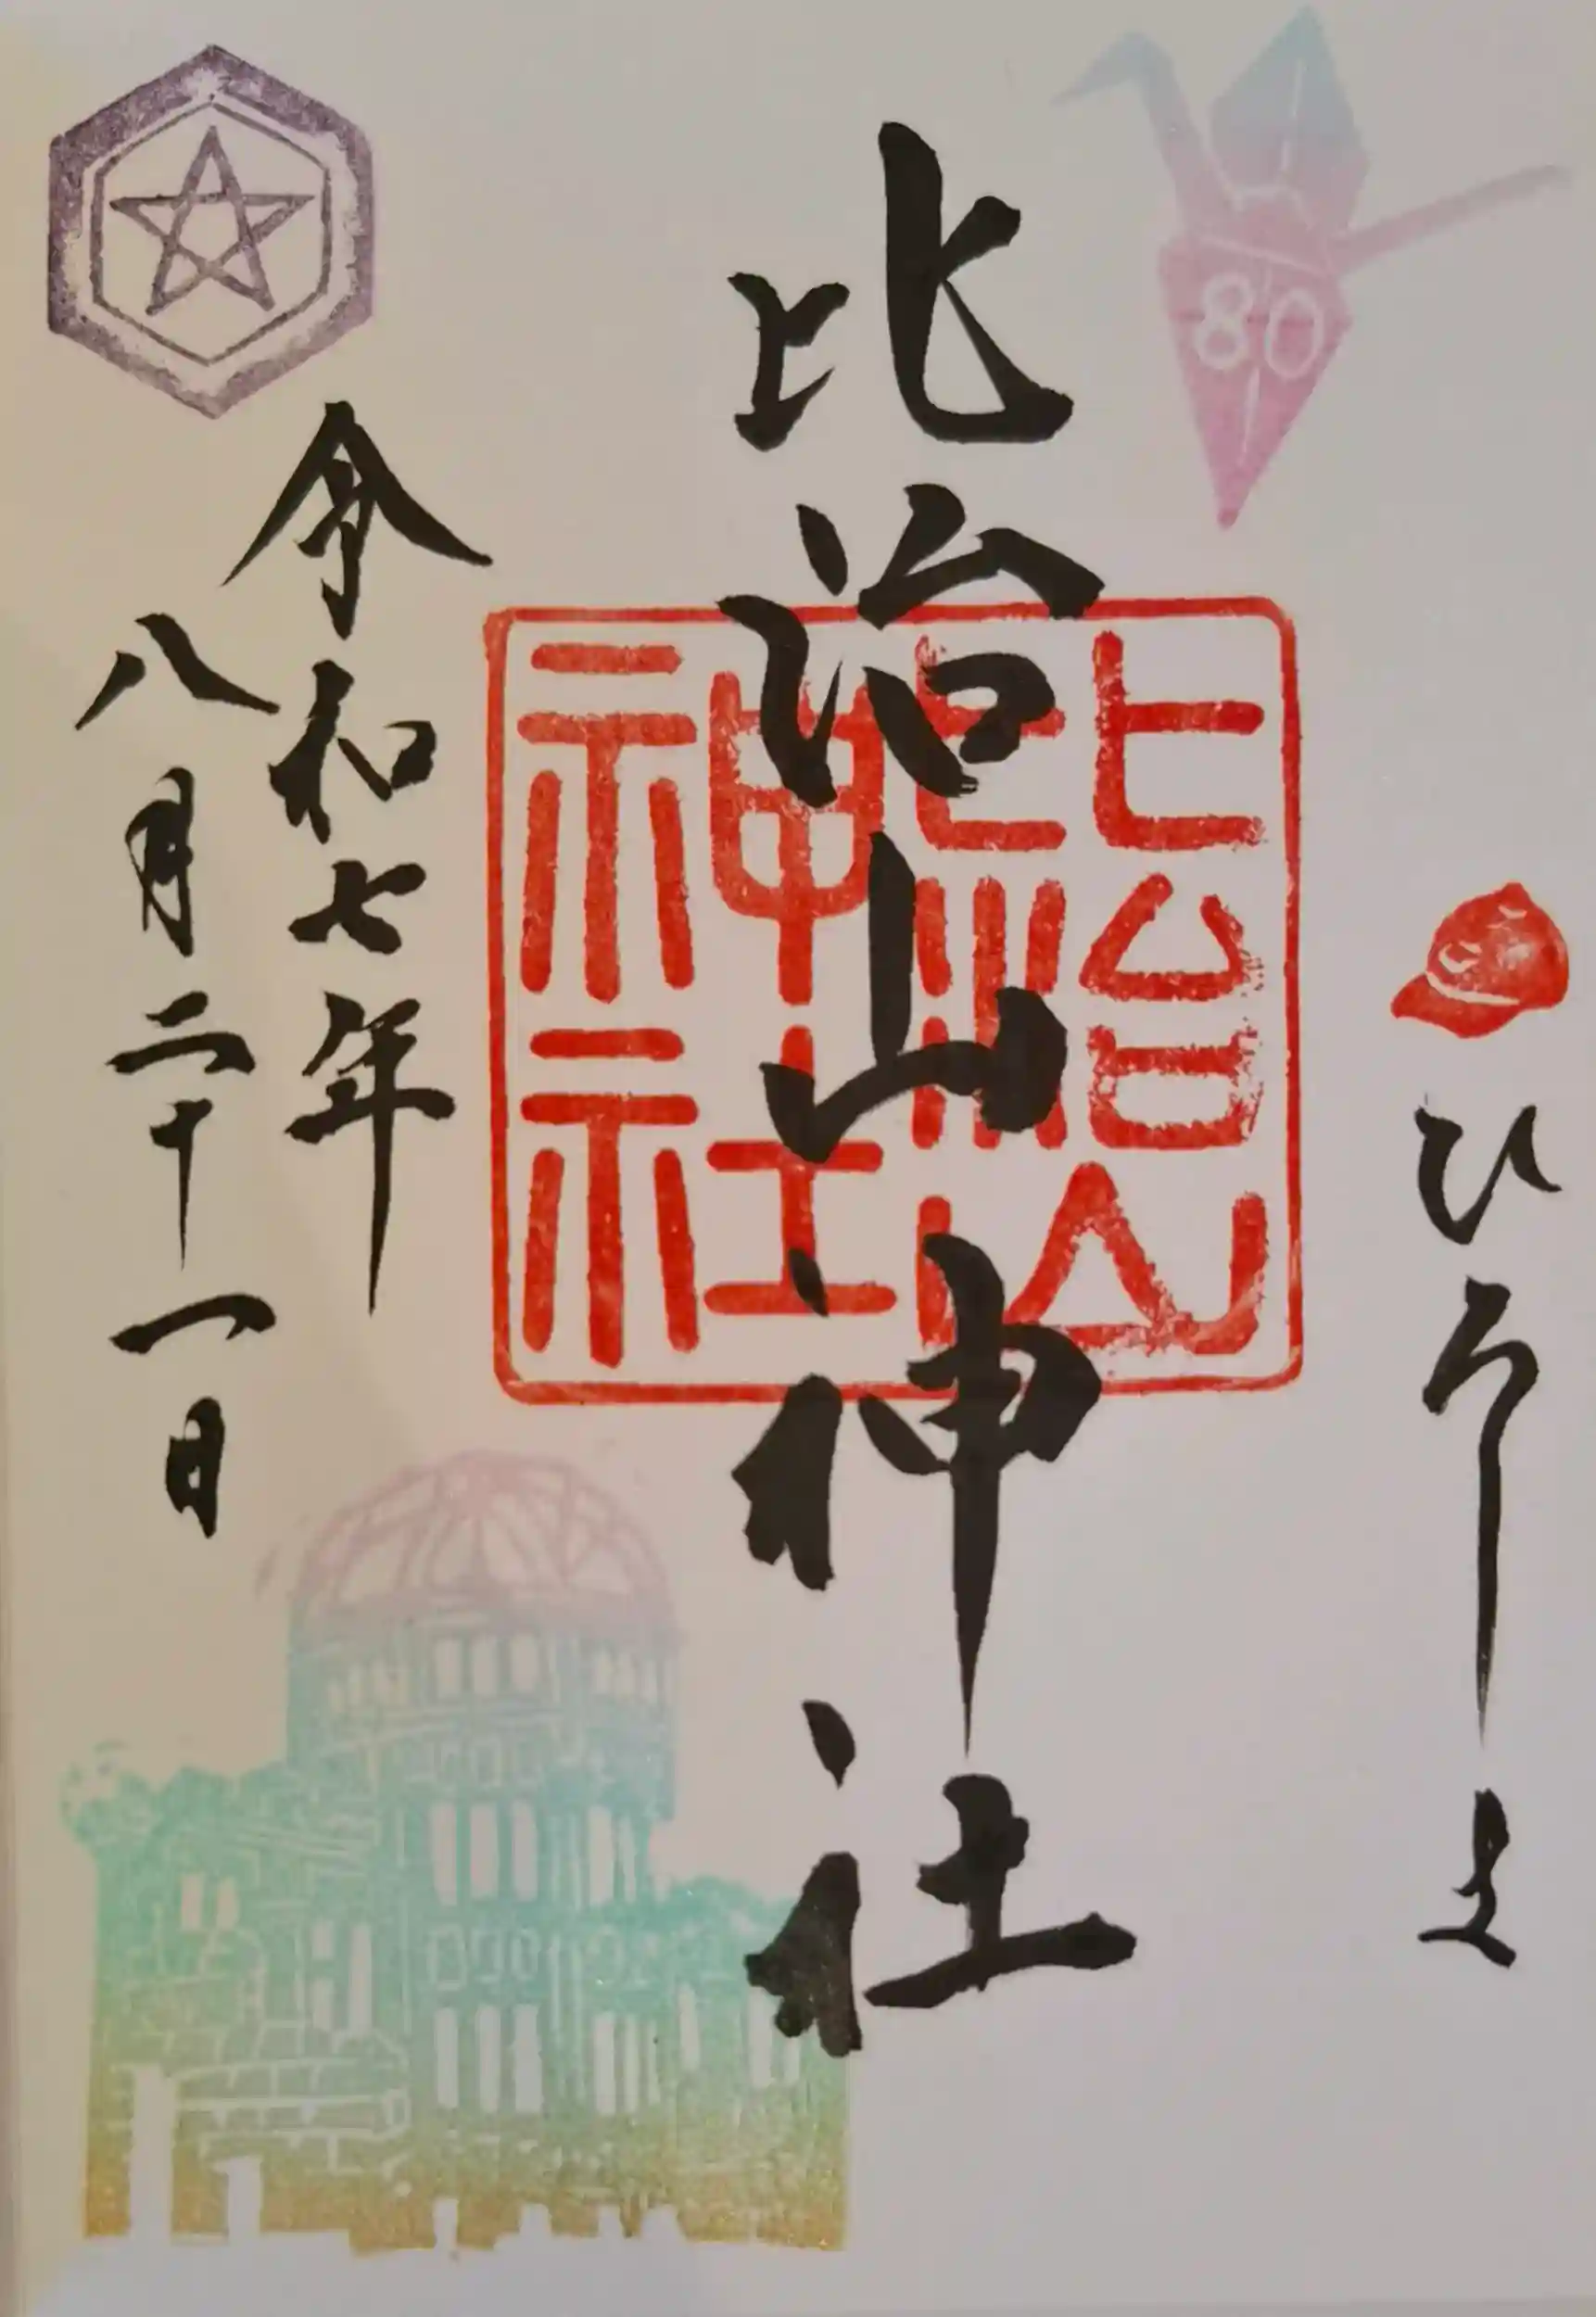 80
ひろしま
比治山神社
比治山
比治山
神社
令和七年
八月二十一日